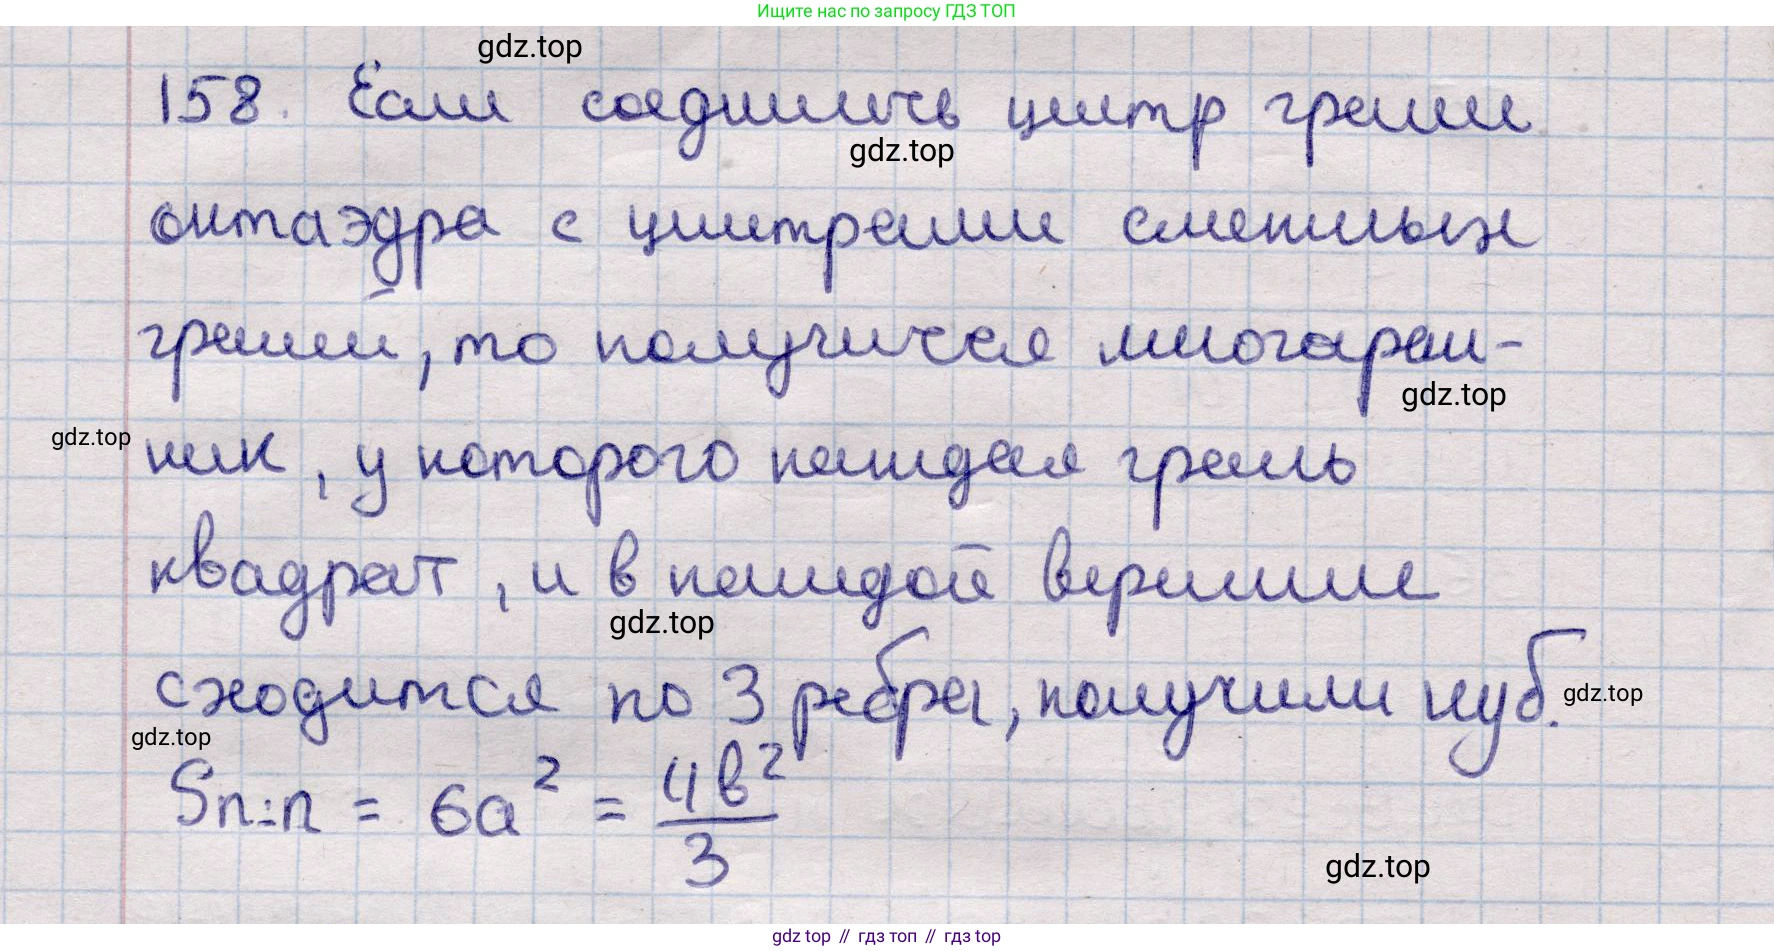 Ищите нас по запросу ГДЗ ТОП
gdz.top
158. Если соединить центр грани
gdz.top
октаэдра с центрами смежных
граней, то получится многоран-
gdz.top
gdz.top
ник, у которого каждая грань
квадрат, и в каждой вершине
gdz.top
сходится по 3 ребра, получили куб.
gdz.top
gdz.top
Sп.п = 6a² = 4b²/3
gdz.top
gdz.top // гдз топ // гдз top